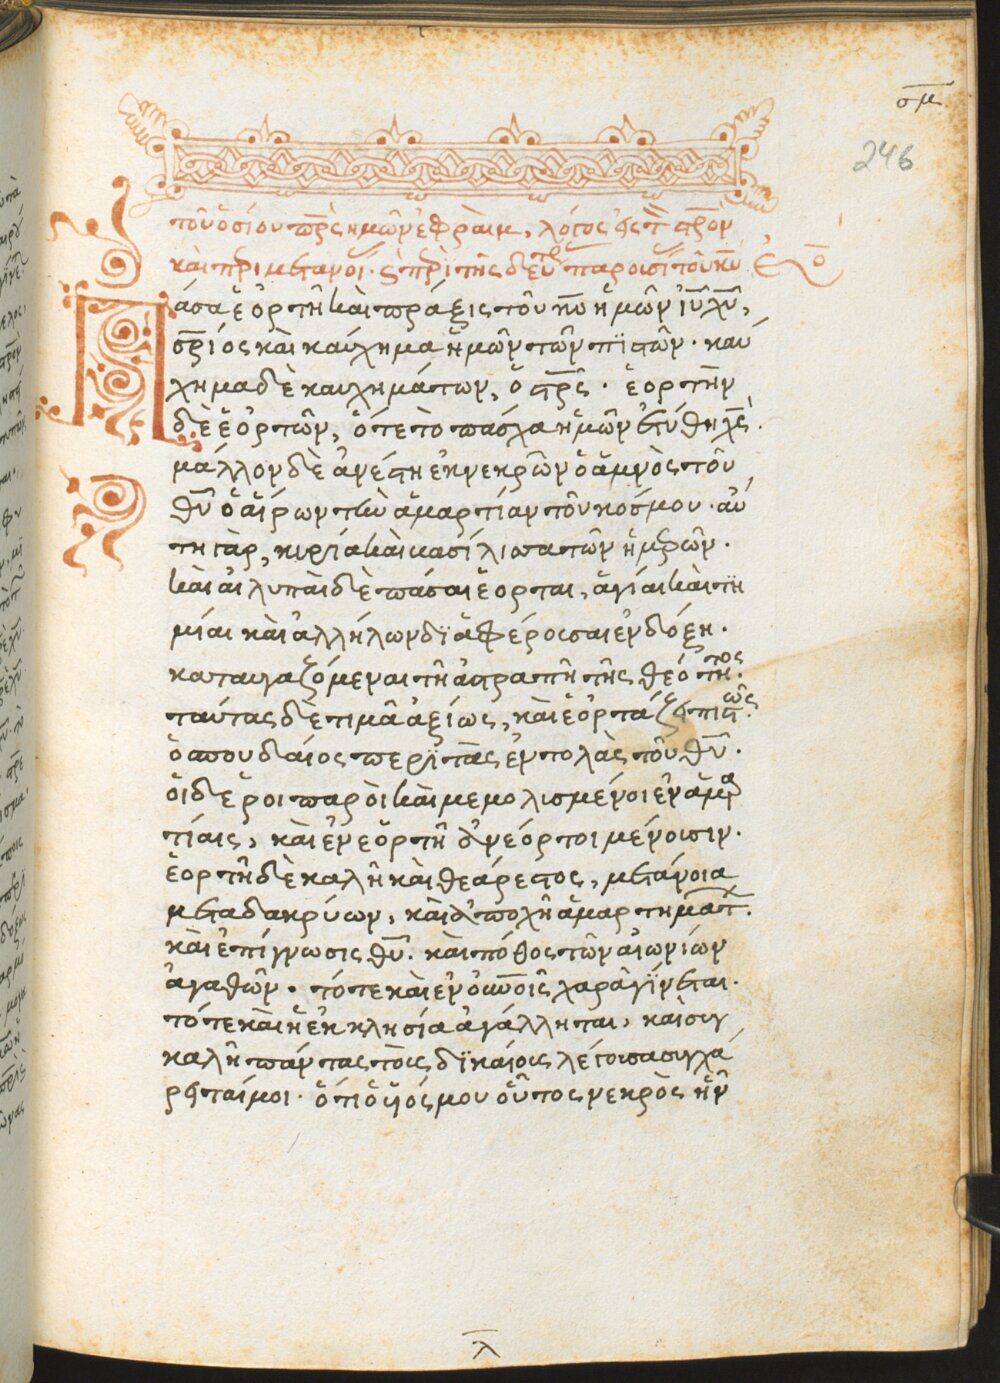 σμ
246
τοῦ ὁσίου πρς ἡμῶν ἐφραὶμ, λόγος εἰς τ στρον
καὶ πρὶ μετανοί. ς πρὶ τῆς δευτρ παροισί τοῦ κυ
άσα ἑορτὴ καὶ πράξις τοῦ κυ ἡμῶν ιυ χυ,
στριός καὶ καύχημα ἡμῶν τῶν πϊστῶν. καύ
χημα δὲ καυχημάτων, ὁ στρς. ἑορτὴν
δὲ ἑορτῶν, ὅτε τὸ πάσχα ἡμῶν ἐτύθη χς.
μάλλον δὲ ἀνέστη ἐκ νεκρῶν ὁ ἀμνὸς τοῦ
θυ ὁ αἴρων τὴν ἁμαρτίαν τοῦ κόσμου. αὕ
τη γὰρ, κυρία καὶ βασίλισσα τῶν ἡμρῶν.
καὶ αἱ λυπαὶ δὲ πάσαι ἑορται, ἅγίαι καὶ τϊ
μίαι καὶ ἀλλήλων δϊαφέροισαι ἐν δόξη.
καταυγαζόμεναι τῆ ἀστραπῆ τῆς θεότητος.
ταύτας δὲ τιμᾶ ἀξίως, καὶ ἑορτάζει πιστῶς.
ὁ σπουδαίος περϊ τὰς ἐντολὰς τοῦ θυ.
οἱ δὲ ῥοιπαρὸι καὶ μεμολισμένοι ἐν ἁμαρ
τίαις, καὶ ἐν ἑορτῆ ἀνεόρτοι μένοισιν.
ἑορτὴ δὲ καλὴ καὶ θεάρεστος, μετάνοια
μετα δακρύων, καὶ ἀποχὴ ἁμαρτημάτ.
καὶ ἐπίγνωσις θυ. καὶ πόθος τῶν αἰωνίων
ἀγαθῶν. τότε καὶ ἐν οὐνοῖς χαρὰ γίνεται.
τότε καὶ ἡ ἐκκλησία ἀγάλληται, καὶ συγ
καλῆ πάντας τοὶς δϊκαίοις λέγοισα συγχά
ρεταί μοι. ὅτι ὁ ὑιός μου οὗτος νεκρὸς ἦν
λ